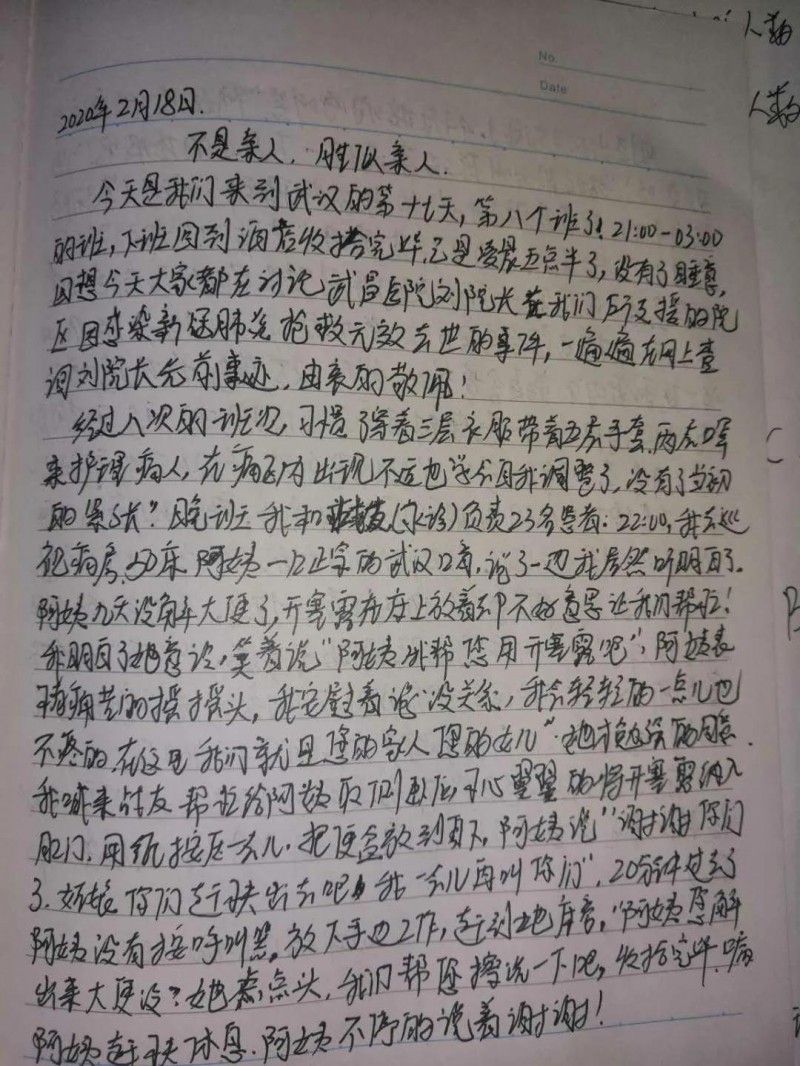 人数
No.
Date
人数
2020年2月18日.
不是亲人.胜似亲人.
今天是我们来到武汉的第十七天,第八个班了!21:00-03:00
的班,下班回到酒店收拾完毕已是凌晨五点半了,没有了睡意,
回想今天大家都在讨论武昌医院刘院长在我们所支援的院
区因感染新冠肺炎抢救无效去世的事件,一遍遍在网上查
询刘院长先前事迹,由衷的敬佩!
经过八次的班次,习惯了穿着三层衣服带着五层手套,两层口罩
来护理病人,在病区内出现不适也学会自我调整了,没有了当初
的紧张?晚班我和(永诊)负责23名患者:22:00,我去巡
视病房,50床阿姨一口正宗的武汉口音,说了一边我居然听明白了.
阿姨九天没解大便了,开塞露在床上放着却不好意思让我们帮忙!
我明白了她意识,笑着说"阿姨我帮您用开塞露吧",阿姨表
情痛苦的摇摇头,我安慰着说"没关系,我会轻轻的一点儿也
不疼的,在这里我们就是您的家人您的女儿".她才勉强的同意.
我喊来战友帮忙给阿姨取侧卧后小心翼翼的将开塞露纳入
肛门.用纸按压一会儿.把便盆放到身下,阿姨说"谢谢你们
了.姑娘你们赶快出去吧我一会儿再叫你们".20分钟过去了
阿姨没有按呼叫器,放下手边工作,赶到她床旁,"阿姨您解
出来大便没?她点点头,我们帮您擦洗一下吧,收拾完毕.嘱
阿姨赶快休息.阿姨不停的说着谢谢!